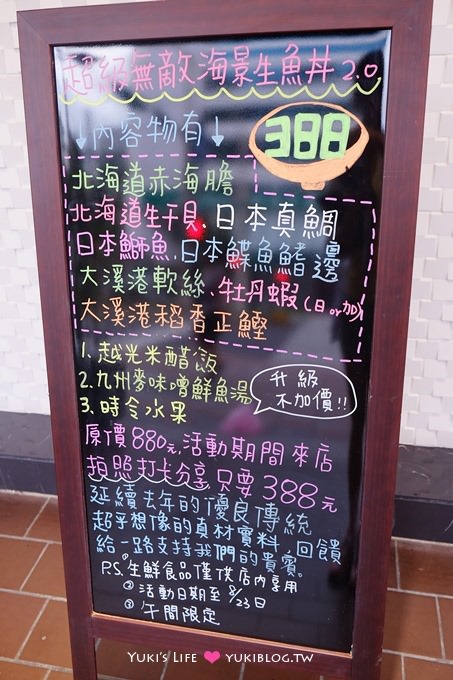 超級無敵海景生魚丼2.0
↓內容物有↓
388
北海道赤海膽
北海道生干貝、日本真鯛
日本鰤魚、日本鰈魚鰭邊
大溪港軟絲、牡丹蝦(日or加)
大溪港稻香正鰹
1. 越光米醋飯
2. 九州麥味噌鮮魚湯
3. 時令水果
升級
不加價!!
原價880元,活動期間來店
拍照打卡分享只要388元
延續去年的優良傳統
超乎想像的真材實料,回饋
給一路支持我們的貴賓。
P.S. ①生鮮食品僅供店內享用
②活動日期至8/23日
③午間限定
YUKI'S LIFE ♥ YUKIBLOG.TW